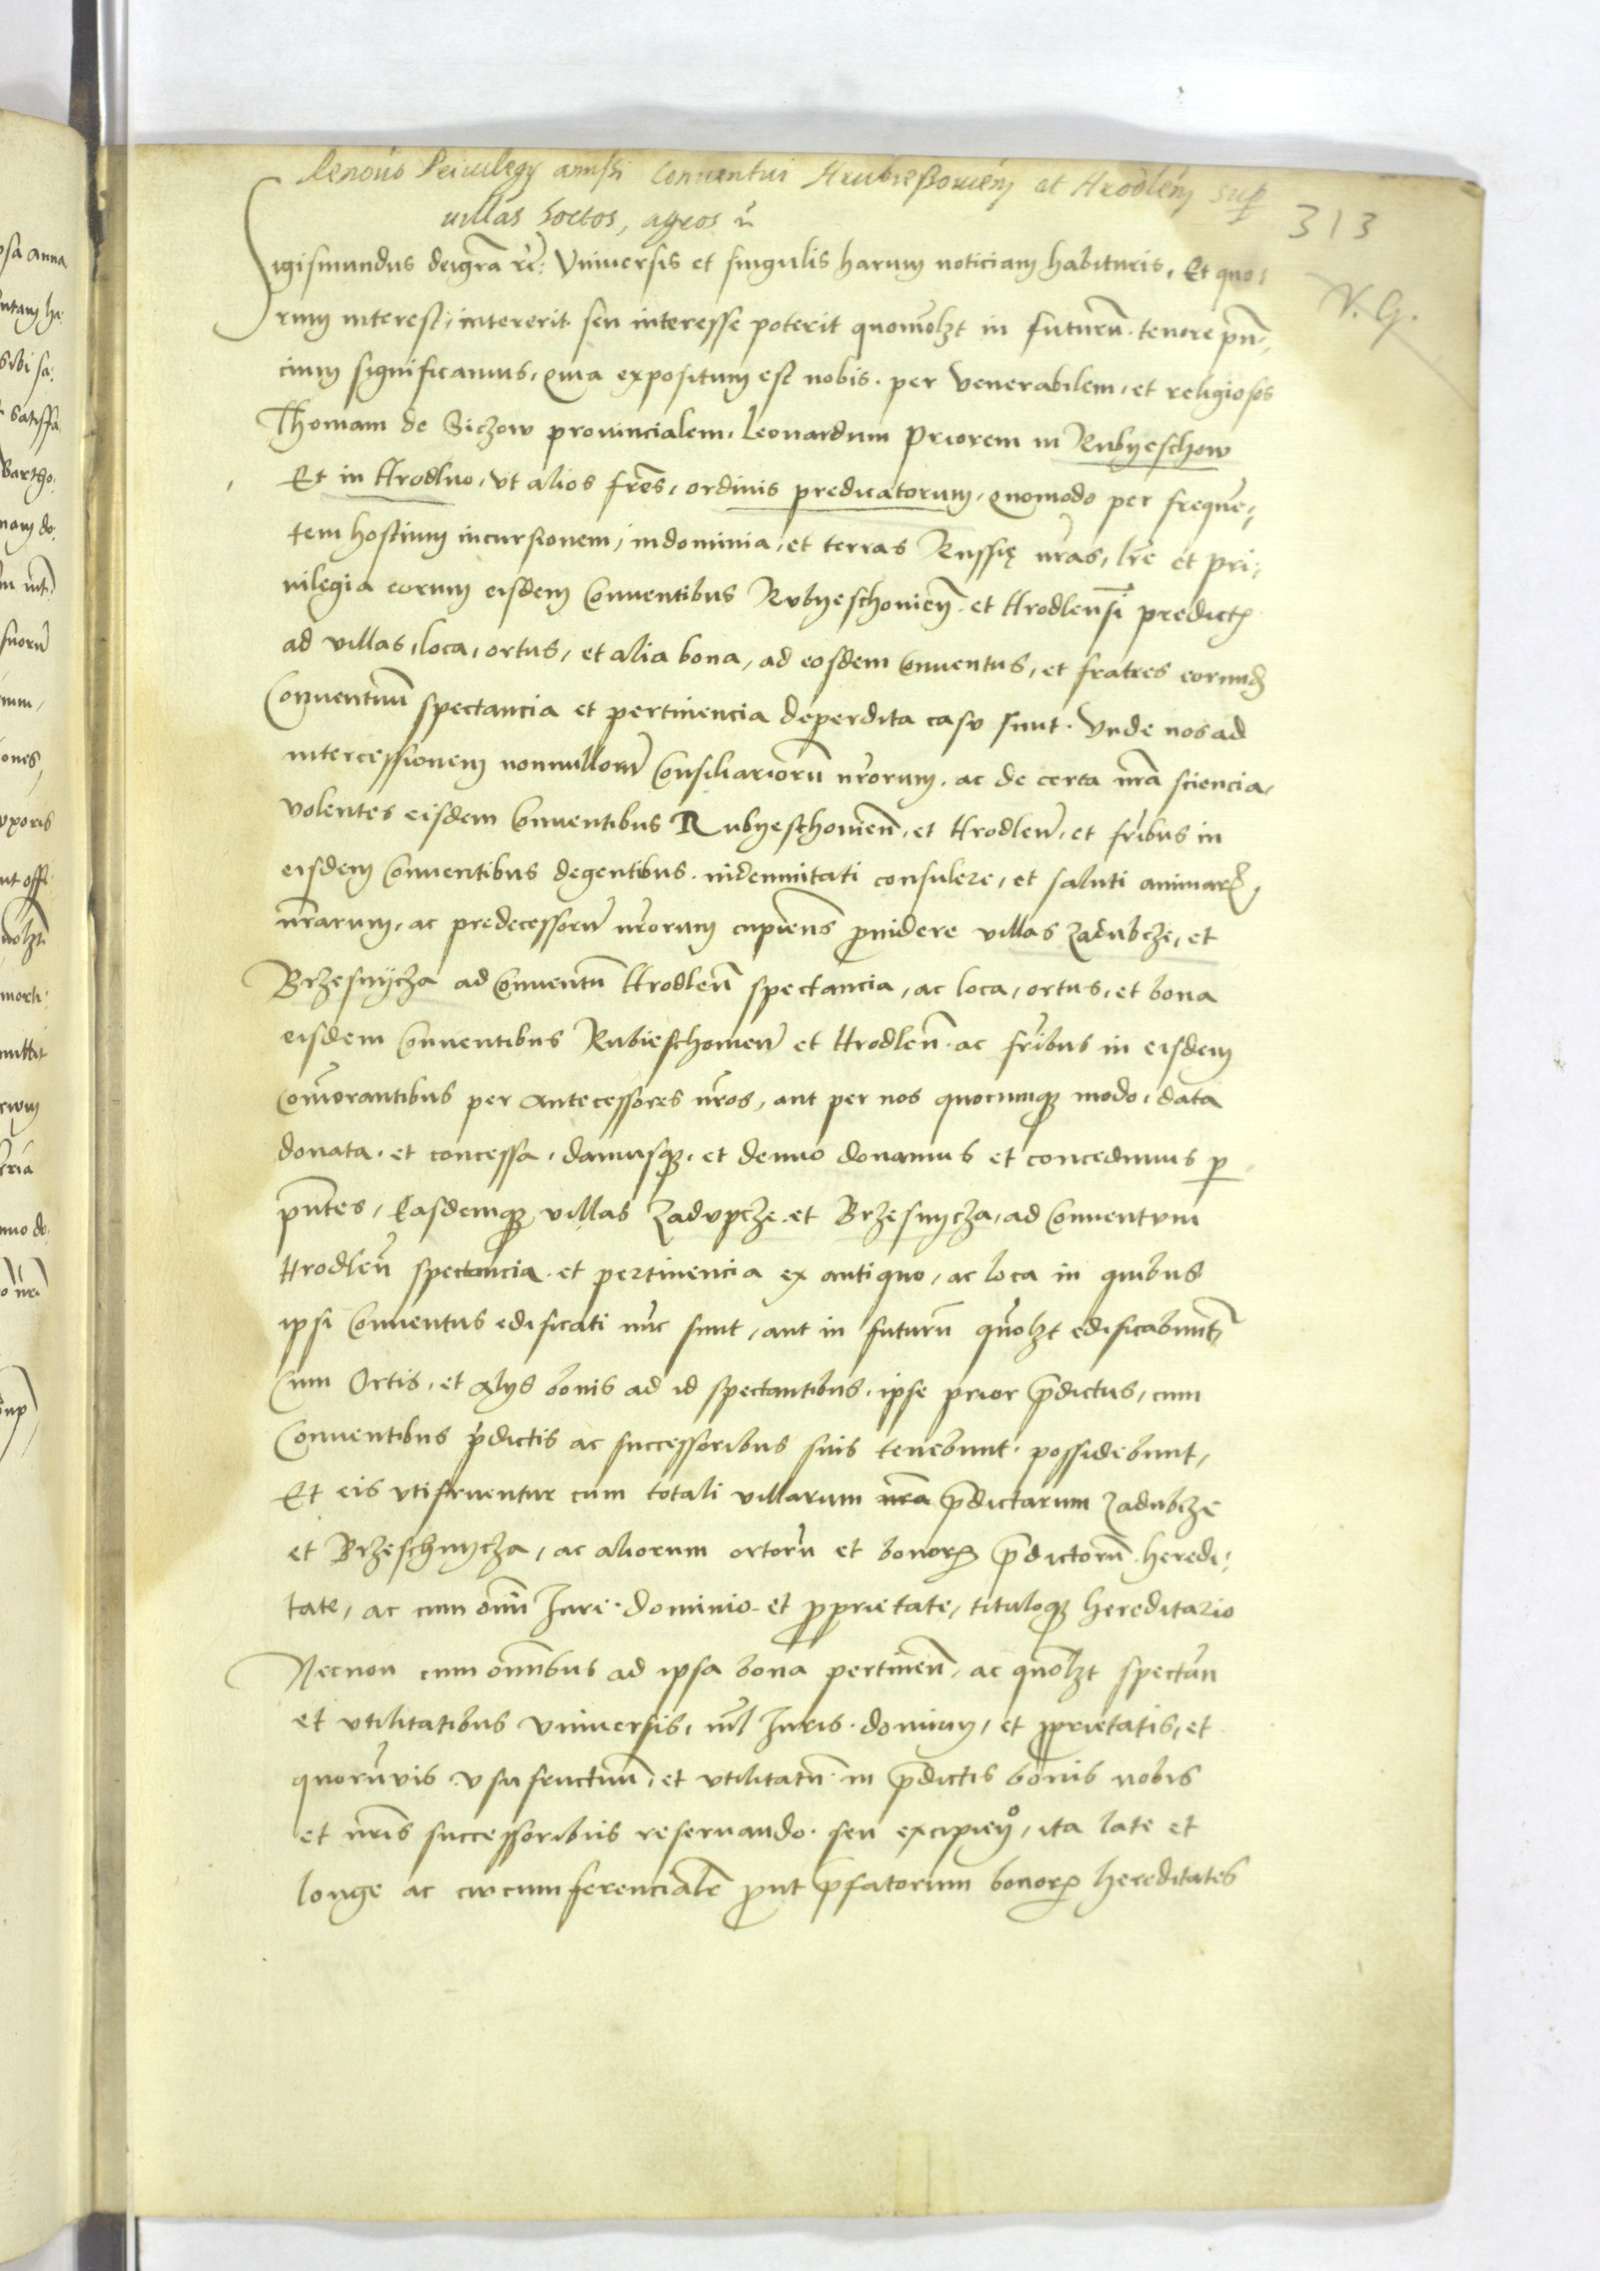 Renouõ Priuilegy amissi Conuentui Hrubießouień et Hrodleń sup
villas hortos, agros ĩ
313
N. G.
Sigismundus deigrã rẽ: Vniuersis et singulis harum noticiam habituris, Et quo:
rum interest, intererit seu interesse poterit quomõlzt in futurũ. tenore pñ:
cium significamus, Quia expositum est nobis. per venerabilem, et religiosos
Thomam de Siczow prouincialem, Leonardum Priorem in Rubyeschow
Et in Hrodluo, vt alios frẽs, ordinis predicatorum, quomodo per frequẽ:
tem hostium incursionem, indominia, et terras Russię nr̃as, lrẽ et pri:
uilegia eorum eisdem Conuentibus Rubyeschouieñ. et Hrodleñsi predict̃
ad villas, loca, ortus, et alia bona, ad eosdem Conuentus, et fratres eorund̃
Conuentuũ spectancia et pertinencia deperdita casu sunt. Vnde nos ad
intercessionem nonnullorũ Consiliariorũ nr̃orum. ac de certa nrã sciencia,
volentes eisdem Conuentibus Rubyeschouieñ, et Hrodleñ, et fr̃ibus in
eisdem Conuentibus degentibus. indemnitati consulere, et saluti animarꝝ,
nr̃arum, ac predecessorũ nr̃orum cupiens ꝓuidere villas Zadubcze, et
Brzesnÿcza ad Conuentũ Hrodleñ spectancia, ac loca, ortus, et bona
eisdem Conuentibus Rubieschouień et Hrodleñ. ac fr̃ibus in eisdem
Com̃orantibus per antecessores nr̃os, aut per nos quocumqꝫ modo, data
donata. et concessa, damusqꝫ. et denuo donamus et concedimus p
pñtes, Easdemqꝫ villas Zadupcze. et Brzesnycza, ad Conuentum
Hrodleñ spectancia. et pertinencia ex antiquo, ac loca in quibus
ipsi Conuentus edificati nũc sunt, aut in futurũ quõlzt edificabunt̃
Cum Ortis, et alys bonis ad id spectantibus. ipse prior p̃dictus, cum
Conuentibus p̃dictis ac successoribus suis tenebunt. possidebunt,
Et eis vtifruentur cum totali villarum nr̃a p̃dictarum Zadubcze
et Brzeschnycza, ac aliorum ortorũ et bonorꝝ p̃dictorũ. heredi:
tate, ac cum om̃i Jure. dominio. et ꝓprietate, tituloqꝫ hereditario
Necnon cum om̃ibus ad ipsa bona pertineñ, ac quõlzt spectañ
et vtilitatibus vniuersis, nil Juris. dominy, et ꝓprietatis, et
quorũvis vsufructuũ, et vtilitatũ. in p̃dictis bonis nobis
et nr̃is successoribus reseruando. seu excipień°, ita late et
longe ac circumferencialẽ ꝓut p̃fatorum bonorꝝ hereditates